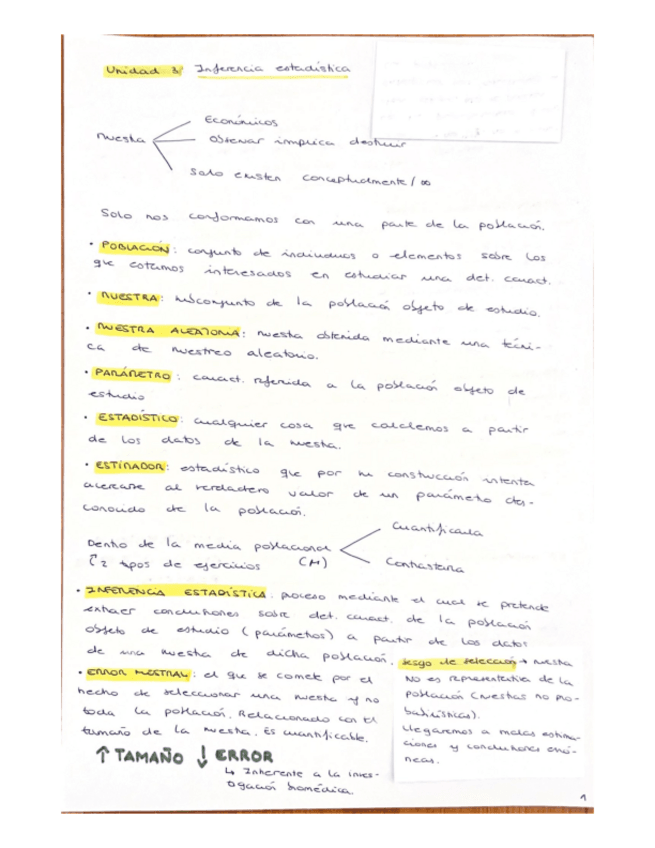 Unidad 3: Inferencia estadística
Económicos
Muestra
Observar implica destruir
Solo existen conceptualmente / ∞
Solo nos conformamos con una parte de la población.
• POBLACIÓN: conjunto de individuos o elementos sobre los
que estamos interesados en estudiar una det. caract.
• MUESTRA: subconjunto de la población objeto de estudio.
• MUESTRA ALEATORIA: muestra obtenida mediante una técni-
ca de muestreo aleatorio.
• PARÁMETRO: caract. referida a la población objeto de
estudio
• ESTADÍSTICO: cualquier cosa que calculemos a partir
de los datos de la muestra.
• ESTIMADOR: estadístico que por su construcción intenta
acercarse al verdadero valor de un parámetro des-
conocido de la población.
Cuantificarla
Dentro de la media poblacional
2 tipos de ejercicios (M)
Contrastarla
• INFERENCIA ESTADÍSTICA: proceso mediante el cual se pretende
extraer conclusiones sobre det. caract. de la población
objeto de estudio (parámetros) a partir de los datos
de una muestra de dicha población.
• ERROR MUESTRAL: el que se comete por el
hecho de seleccionar una muestra y no
toda la población. Relacionado con el
tamaño de la muestra. Es cuantificable.
↑ TAMAÑO ↓ ERROR
↳ Inherente a la inves-
tigación biomédica.
Sesgo de selección → muestra
NO es representativa de la
población (muestras no pro-
babilísticas).
Llegaremos a malas estima-
ciones y conclusiones erró-
neas.
1